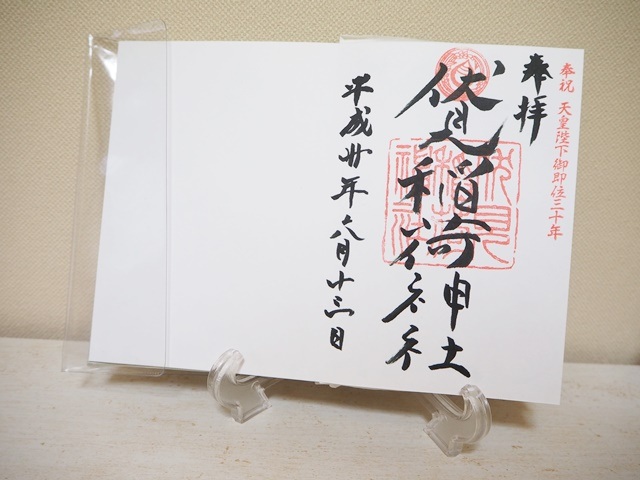 奉祝 天皇陛下御即位三十年
奉拝
伏見稲荷神社
平成卅年六月十三日